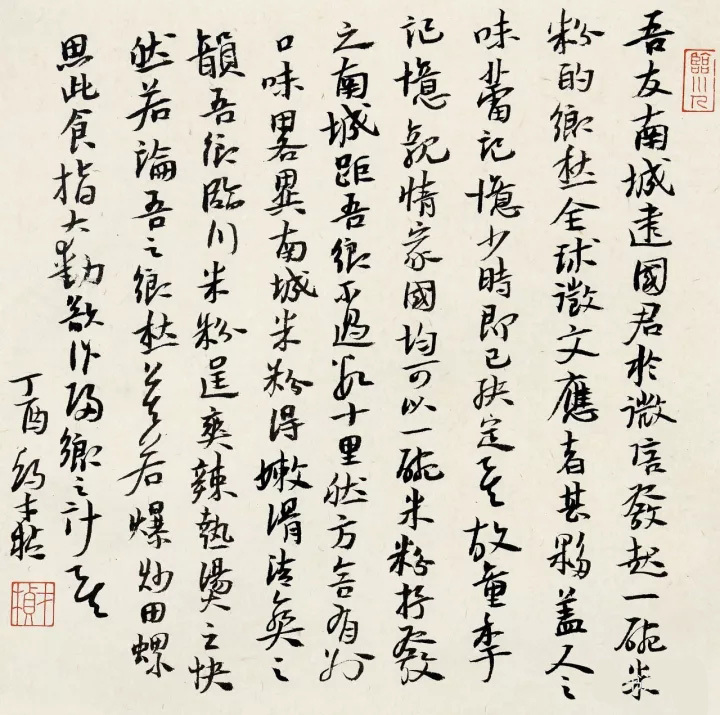 臨川人
吾友南城連國君於微信發起一碗米
粉的鄉愁全球徵文應者甚夥蓋人之
味蕾記憶少時即已決定矣故童年
記憶親情家國均可以一碗米粉抒發
之南城距吾鄉不過數十里然方言有別
口味畧異南城米粉得嫩滑清爽之
韻吾鄉臨川米粉呈爽辣熱燙之快
然若論吾之鄉愁莫若爆炒田螺
思此食指大動欲作歸鄉之計矣
丁酉